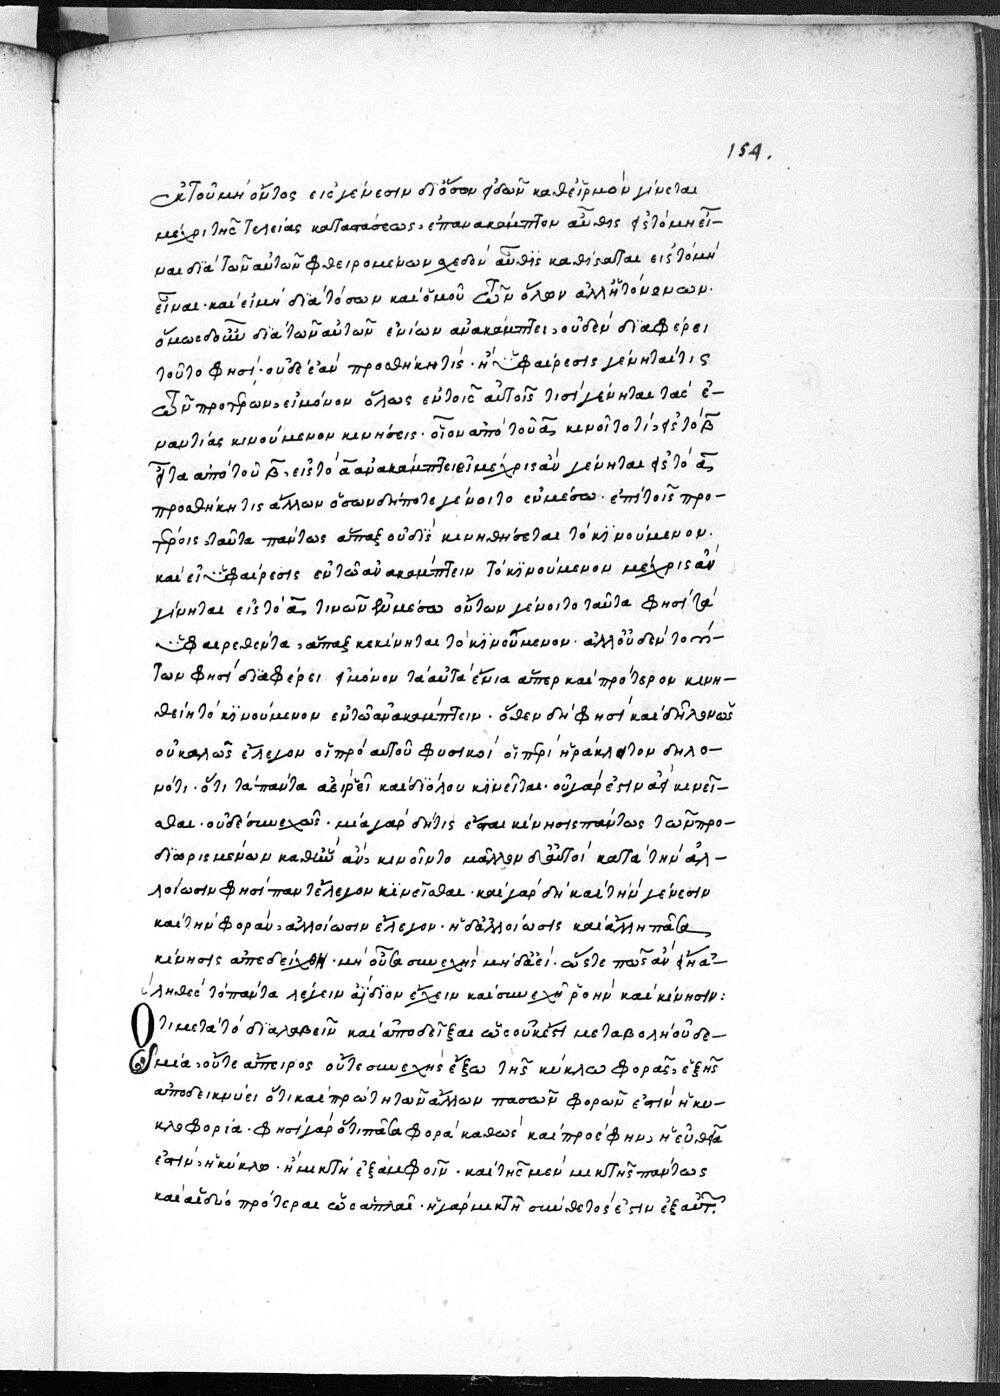 154.
ἐκ τοῦ μὴ ὄντος εἰς γένεσιν δι' ὅσων ὁδῶν καθ' εἱρμὸν γίνεται
μέχρι τῆς τελείας καταστάσεως, ἐπανακάμπτον αὖθις εἰς τὸ μὴ εἶ-
ναι διὰ τῶν αὐτῶν φθειρομένων σχεδὸν αὖθις καθίσταται εἰς τὸ μὴ
εἶναι· καὶ εἰ μὴ διὰ τόσων καὶ ὁμοῦ τῶν ὅλων ἀλλή τὸν
ὅμως δ' οὖν διὰ τῶν αὐτῶν ἐνίων ἀνακάμπτει, οὐδὲν διαφέρει
τοῦτο φησί· οὐδὲ ἐὰν προσθήκη τίς· ἢ ὑφαίρεσις γένηταί τις
τῶν προτέρων, εἰ μόνον ὅλως ἐν τοῖς αὐτοῖς τισὶ γένηται τὰς ἐ-
ναντίας κινούμενον κινήσεις· οἷον ἀπὸ τοῦ α κινοῖτό τι, εἰς τὸ β
εἶτα ἀπὸ τοῦ β, εἰς τὸ α ἀνακάμπτει εἰ μέχρις ἂν γένηται εἰς τὸ α
προσθήκη τις ἄλλων ὅσων δήποτε γένοιτο ἐν μέσω· ἐπὶ τοῖς προ-
τέροις, ταῦτα πάντως ἅπαξ οὐ δὶς κινηθήσεται τὸ κινούμενον·
καὶ εἰ ὑφαίρεσις ἐν τῶ ἀνακάμπτειν τὸ κινούμενον μέχρις ἂν
γένηται εἰς τὸ α, τινῶν ἐν μέσω ὄντων γένοιτο ταῦτα φησὶ τὰ
ὑφαιρεθέντα, ἅπαξ κεκίνηται τὸ κινούμενον· ἀλλ' οὐδὲν τούτων
των φησὶ διαφέρει εἰ μόνον τὰ αὐτὰ ἔνια ἅπερ καὶ πρότερον κινη-
θείη τὸ κινούμενον ἐν τῶ ἀνακάμπτειν· ὅθεν δὴ φησὶ καὶ δῆλον ὡς
οὐ καλῶς ἔλεγον οἱ πρὸ αὐτοῦ φυσικοὶ οἱ περὶ ἡράκλειτον δηλο-
νότι· ὅτι τὰ πάντα ἀεὶ ῥεῖ καὶ διόλου κινεῖται· οὐ γάρ ἐστιν ἀεὶ κινεῖ-
σθαι· οὐδὲ συνεχῶς· μία γὰρ δή τις ἔσται κίνησις πάντως τῶν προ-
διωρισμένων καθ' ἣν ἂν, κινοῖντο μᾶλλον δ' αὐτοὶ κατὰ τὴν ἀλ-
λοίωσιν φησὶ πάντ' ἔλεγον κινεῖσθαι· καὶ γὰρ δὴ καὶ τὴν γένεσιν
καὶ τὴν φορὰν, ἀλλοίωσιν ἔλεγον· ἡ δ' ἀλλοίωσις καὶ ἄλλη πᾶσα
κίνησις ἀπεδείχθη· μὴ οὖσα συνεχὴς μηδ' ἀεί· ὥστε πῶς ἂν εἴη ἀ-
ληθὲς τὸ πάντα λέγειν ἀΐδιον ἔχειν καὶ συνεχῆ ῥοὴν καὶ κίνησιν:
Ὅτι μετὰ τὸ διαλαβεῖν καὶ ἀποδεῖξαι ὡς οὐκ ἔστι μεταβολὴ οὐδε-
μία, οὔτε ἄπειρος οὔτε συνεχὴς ἔξω τῆς κύκλω φορᾶς, ἑξῆς
ἀποδεικνύει ὅτι καὶ πρώτη τῶν ἄλλων πασῶν φορῶν ἐστὶν ἡ κυ-
κλοφορία· φησὶ γὰρ ὅτι πᾶσα φορὰ καθὼς καὶ προέφην, ἢ εὐθεῖα
ἐστὶν, ἢ κύκλω· ἢ μικτὴ ἐξ ἀμφοῖν· καὶ τῆς μὲν μικτῆς πάντως
καὶ αἱ δύο πρότεραι ὡς ἁπλαῖ· ἡ γὰρ μικτὴ σύνθετός ἐστιν ἐξ αὐτῶν.